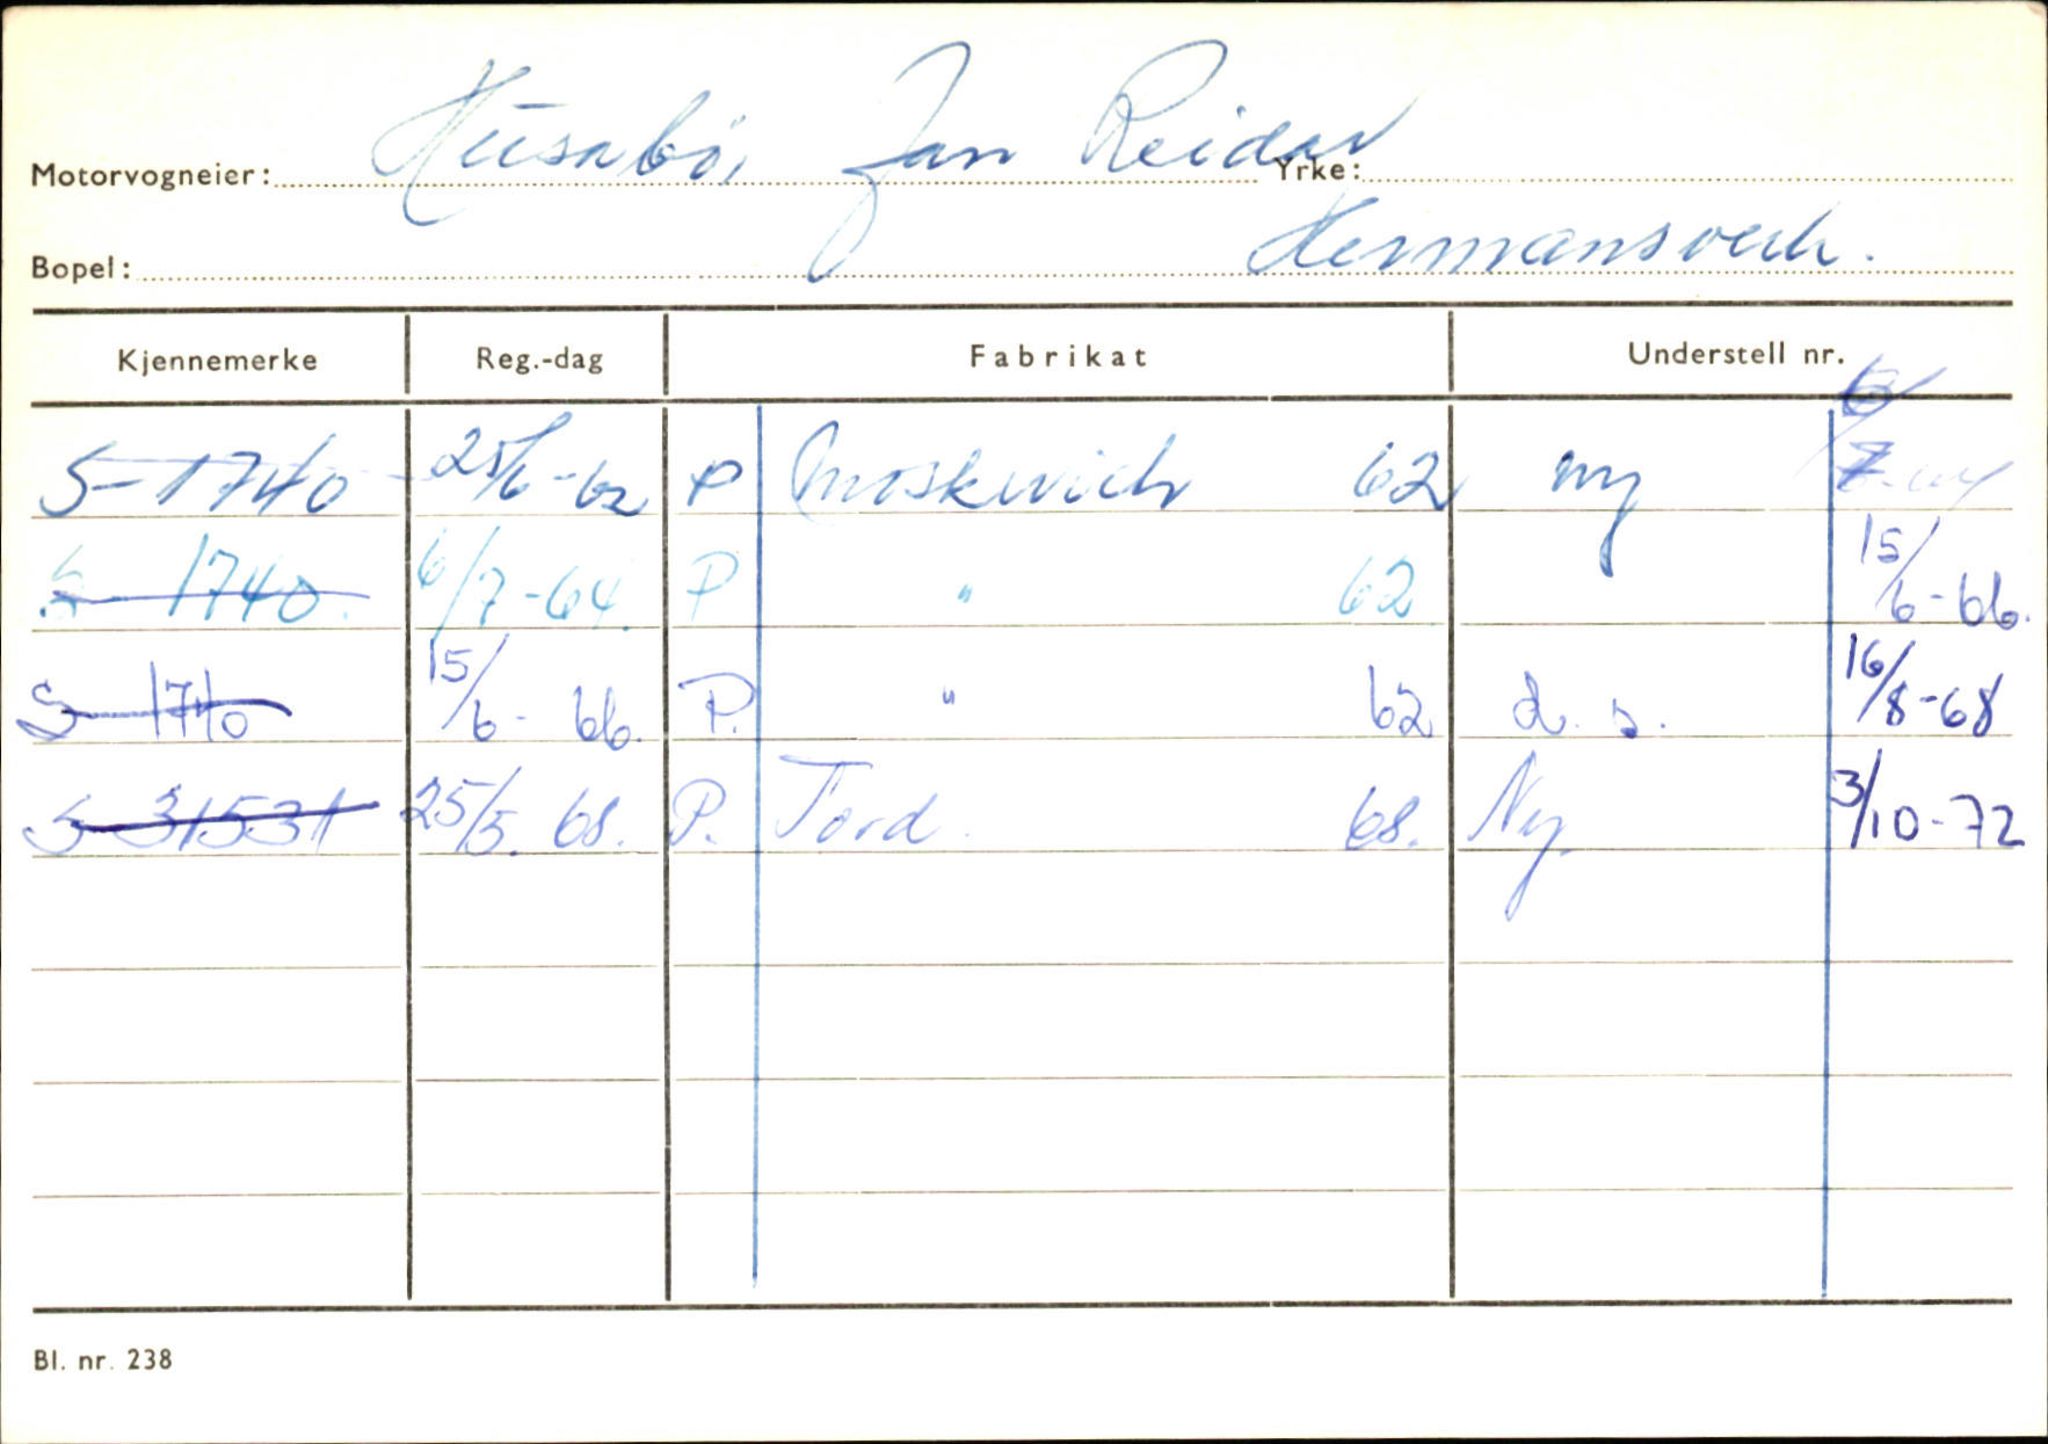 Motorvogneier: Husabö, Jan Reidar Yrke:
Bopel: Hermansverk.
Kjennemerke Reg.-dag Fabrikat Understell nr.
S-1740 25/6-62 P Moskvich 62 ny
S-1740. 6/7-64. P " 62 15/6-66.
S-1740 15/6-66. P. " 62 d.s. 16/8-68
S-31531 25/5.68. P. Ford. 68. Ny. 3/10-72
Bl. nr. 238